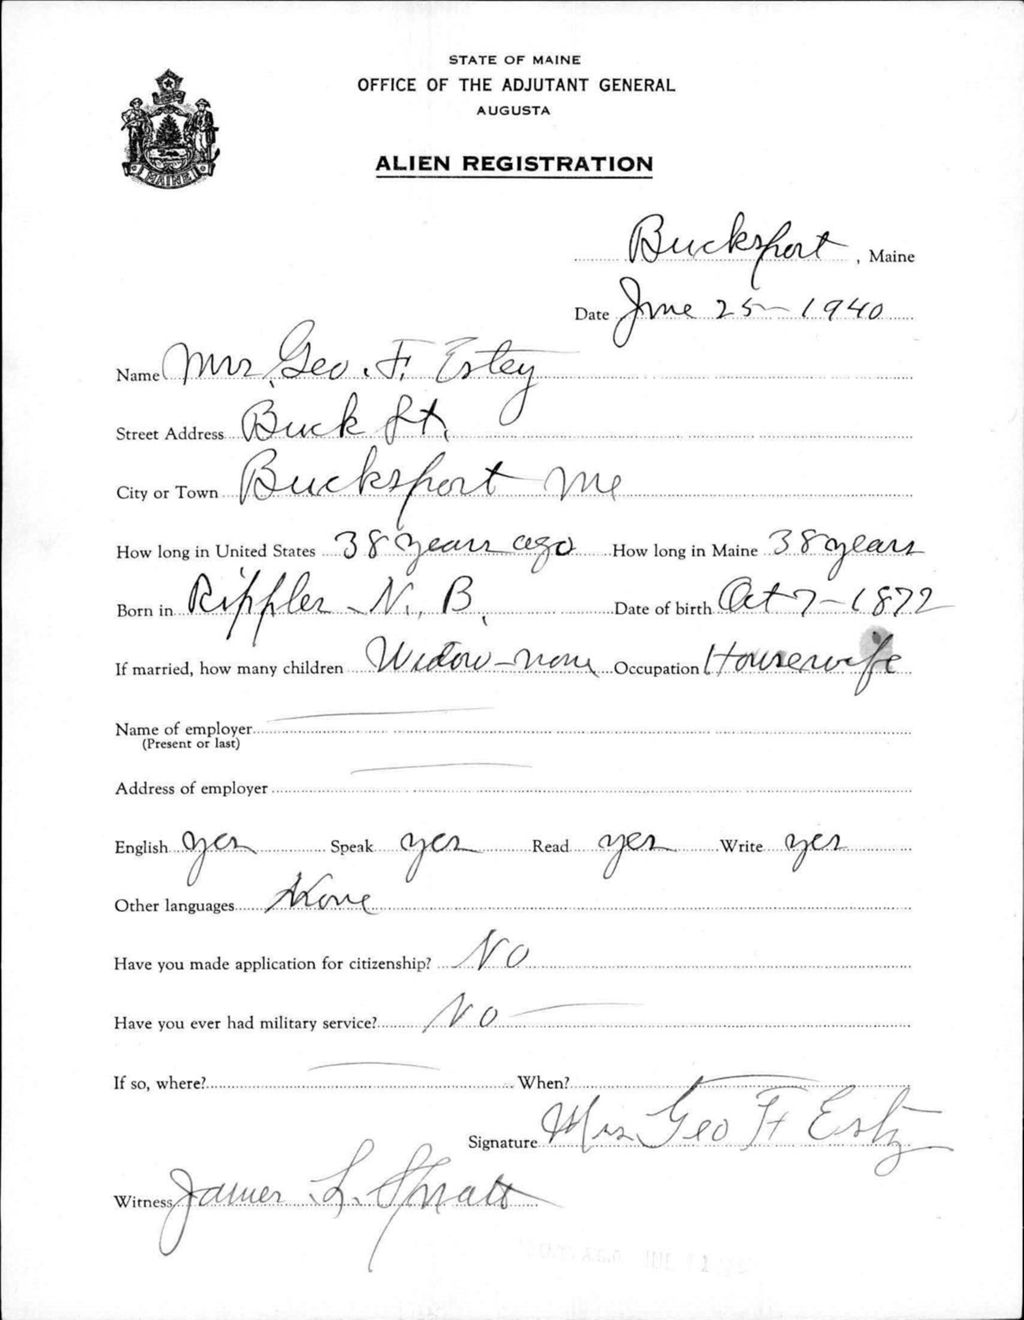 STATE OF MAINE
OFFICE OF THE ADJUTANT GENERAL
AUGUSTA
MAINE
ALIEN REGISTRATION
Bucksport, Maine
Date June 25-1940
Name Mrs. Geo. F. Estey
Street Address Buck St.
City or Town Bucksport Me
How long in United States 38 years ago How long in Maine 38 years
Born in Rippler - N. B. Date of birth Oct 7-1872
If married, how many children Widow-none Occupation Housewife
Name of employer
(Present or last)
Address of employer
English yes Speak yes Read yes Write yes
Other languages None
Have you made application for citizenship? NO
Have you ever had military service? NO
If so, where? When?
Signature Mrs Geo F Estey
Witness James L. Spratt